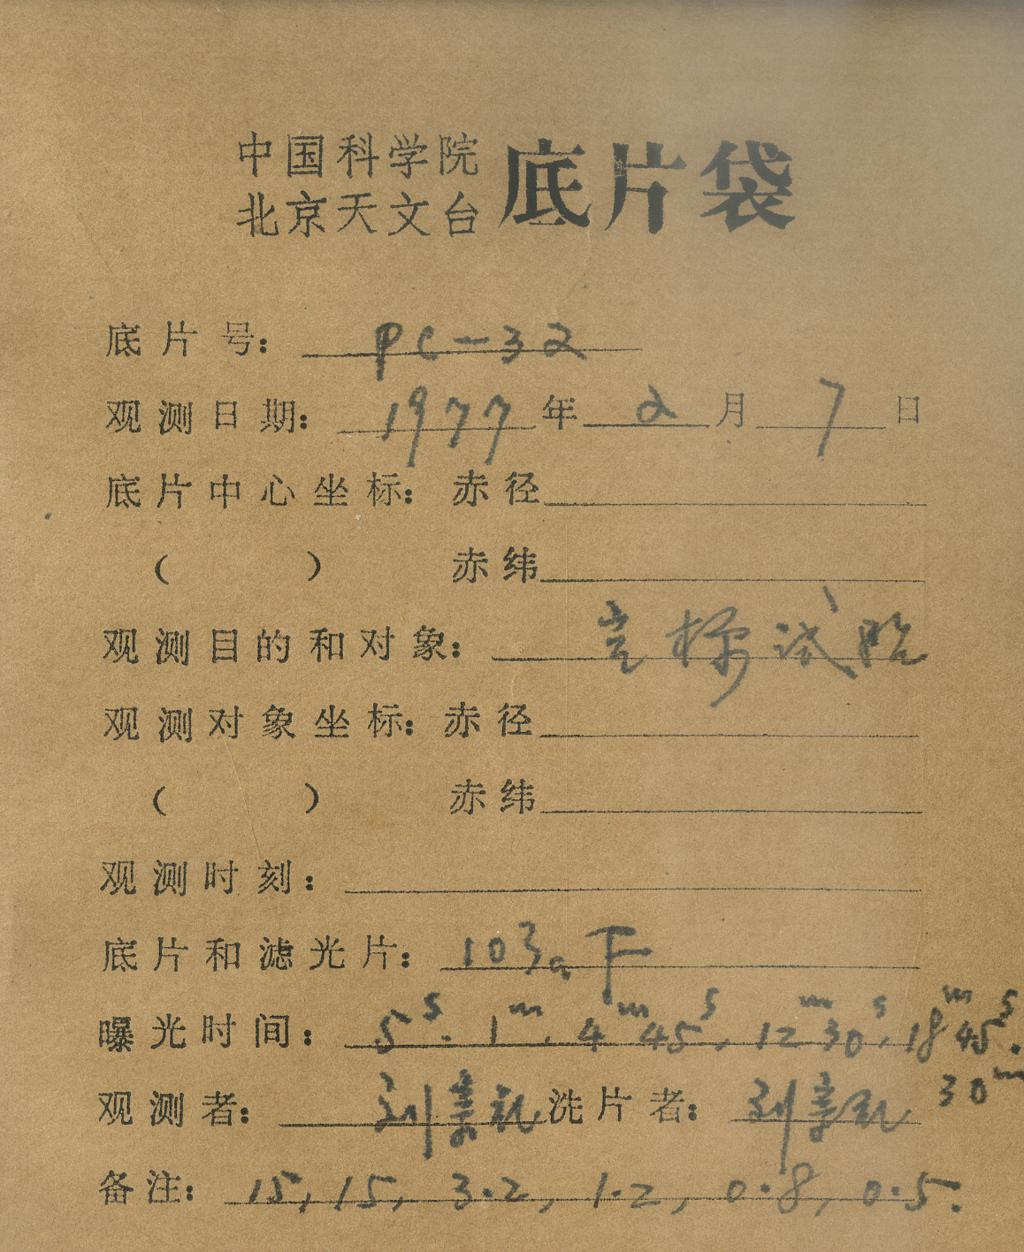 中国科学院
北京天文台 底片袋
底片号: PC-32
观测日期: 1977年 2月 7日
底片中心坐标: 赤径
( ) 赤纬
观测目的和对象: 定标试验
观测对象坐标: 赤径
( ) 赤纬
观测时刻:
底片和滤光片: 103aF
曝光时间: 5s. 1m. 4m45s, 12m30s, 18m45s.
30m
观测者: 刘 洗片者: 刘
备注: 15, 15, 3.2, 1.2, 0.8, 0.5.